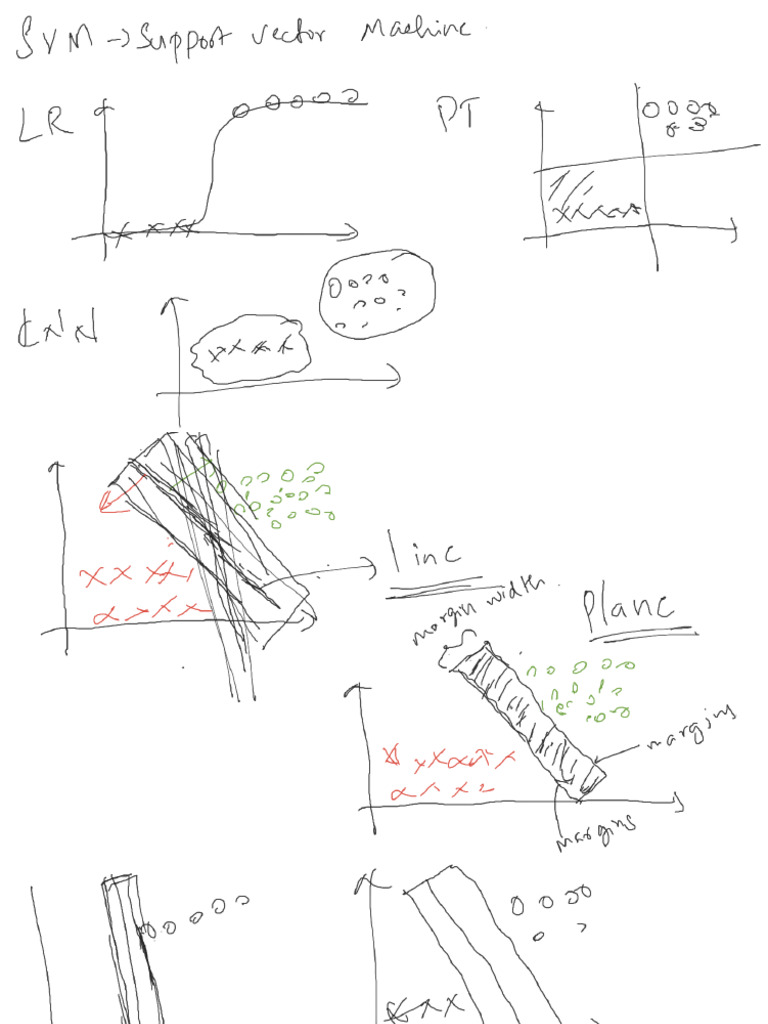 SVM → Support vector Machine
LR
DT
KNN
line
margin width
Plane
margins
margins